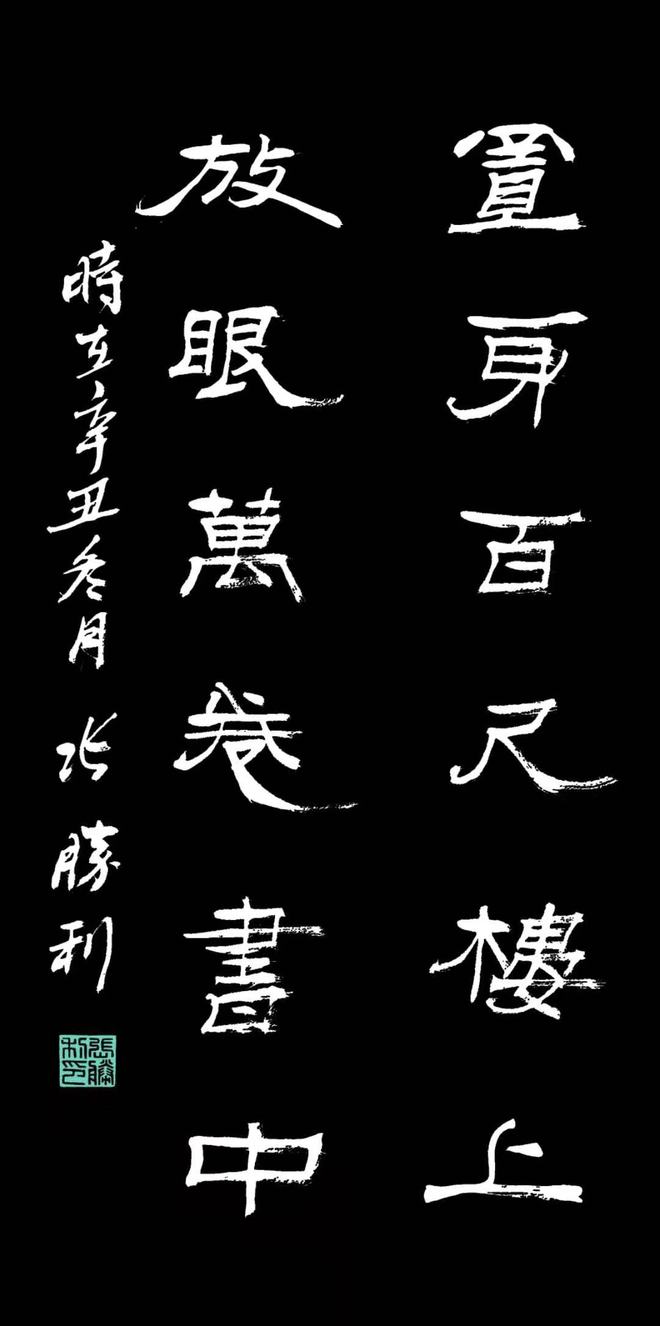 置身百尺樓上
放眼萬卷書中
時在辛丑冬月 張勝利
張勝利印